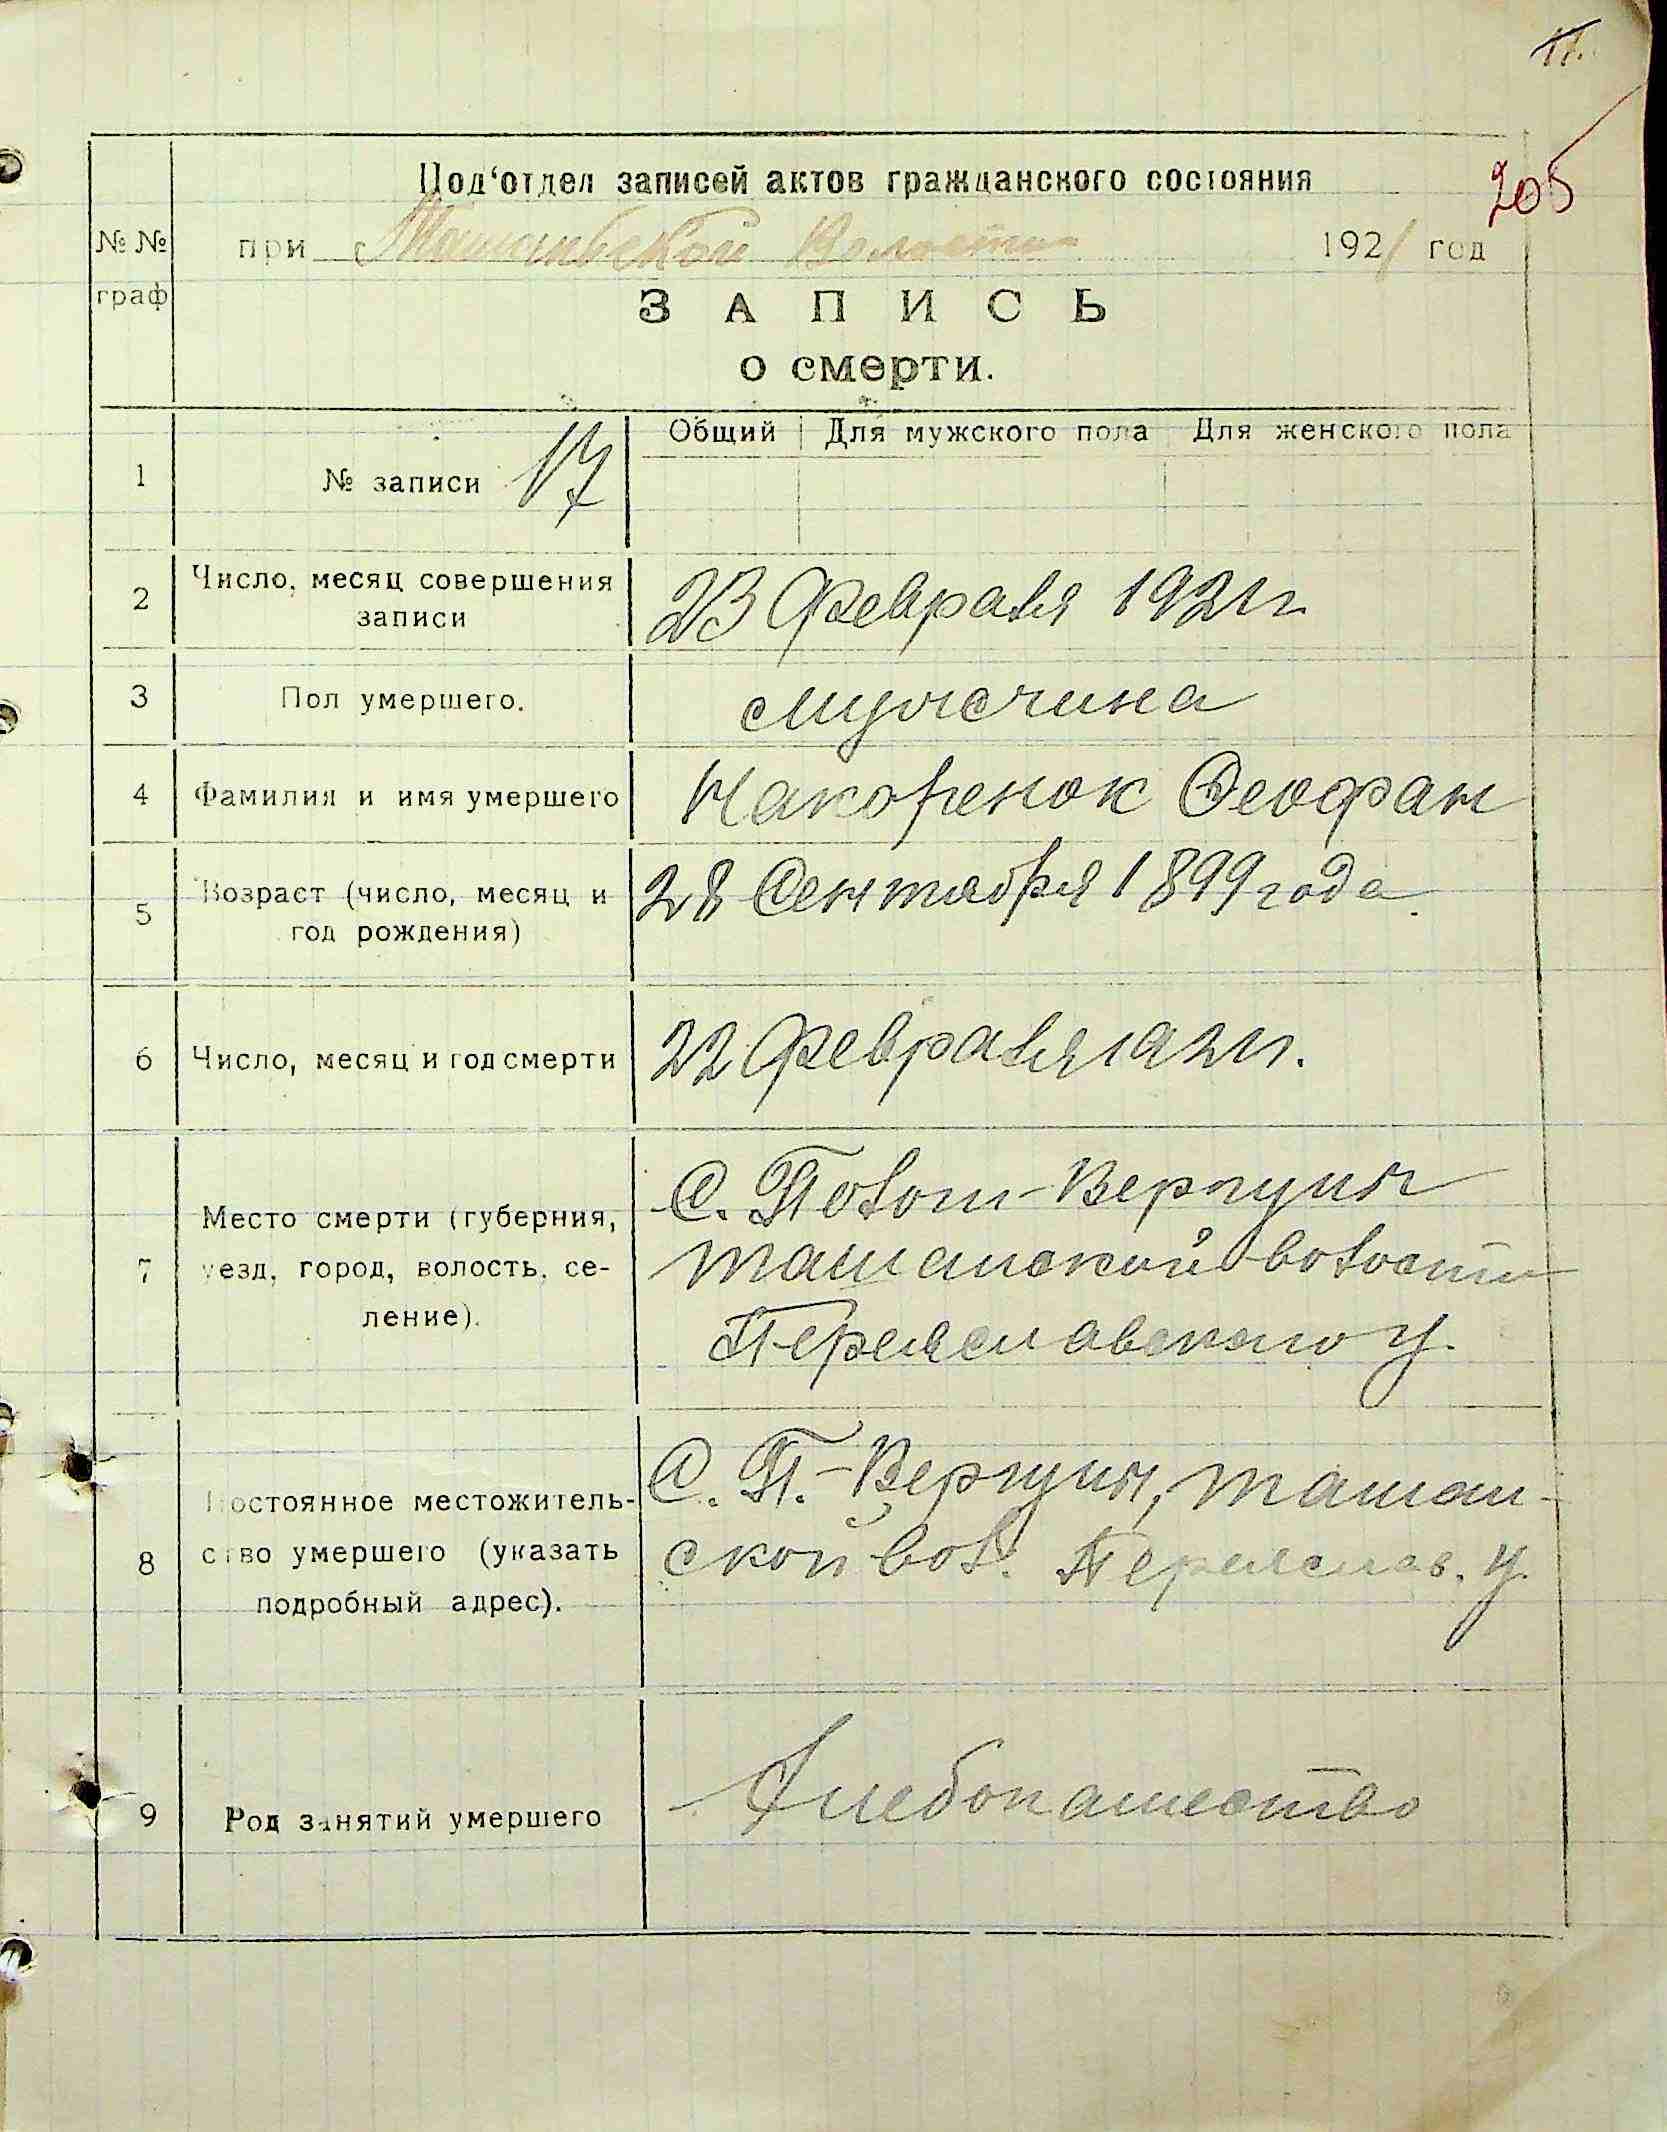 11.
205
Под'отдел записей актов гражданского состояния
№ № граф
при Ташанской Волости 1921 год
ЗАПИСЬ
о смерти.
1 № записи 17 Общий Для мужского пола Для женского пола
2 Число, месяц совершения
записи
23 Февраля 1921 г.
3 Пол умершего.
мужчина
4 Фамилия и имя умершего
Феофан
5 Возраст (число, месяц и
год рождения)
28 Сентября 1899 года.
6 Число, месяц и год смерти
22 Февраля 1921 г.
7 Место смерти (губерния,
уезд, город, волость, се-
ление).
С. Полог-Вергуны
Ташанской волости
Переяславского у.
8 Постоянное местожитель-
ство умершего (указать
подробный адрес).
С. П.-Вергуны, Ташан-
ской вол. Переяслав. у.
9 Род занятий умершего
Хлебопашество